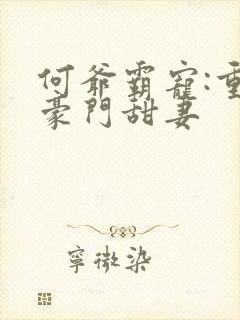 何爺霸寵:重
豪門甜妻
寧微染